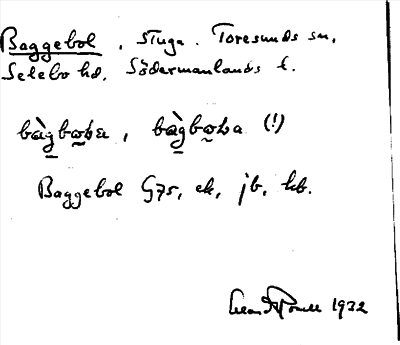 Baggebol, stuga. Toresunds sn,
Selebo hd, Södermanlands l.
bàgbo̯ɬɐ, bàgbo̯ɬa (!)
Baggebol G75, ek, jb, hb.
1932